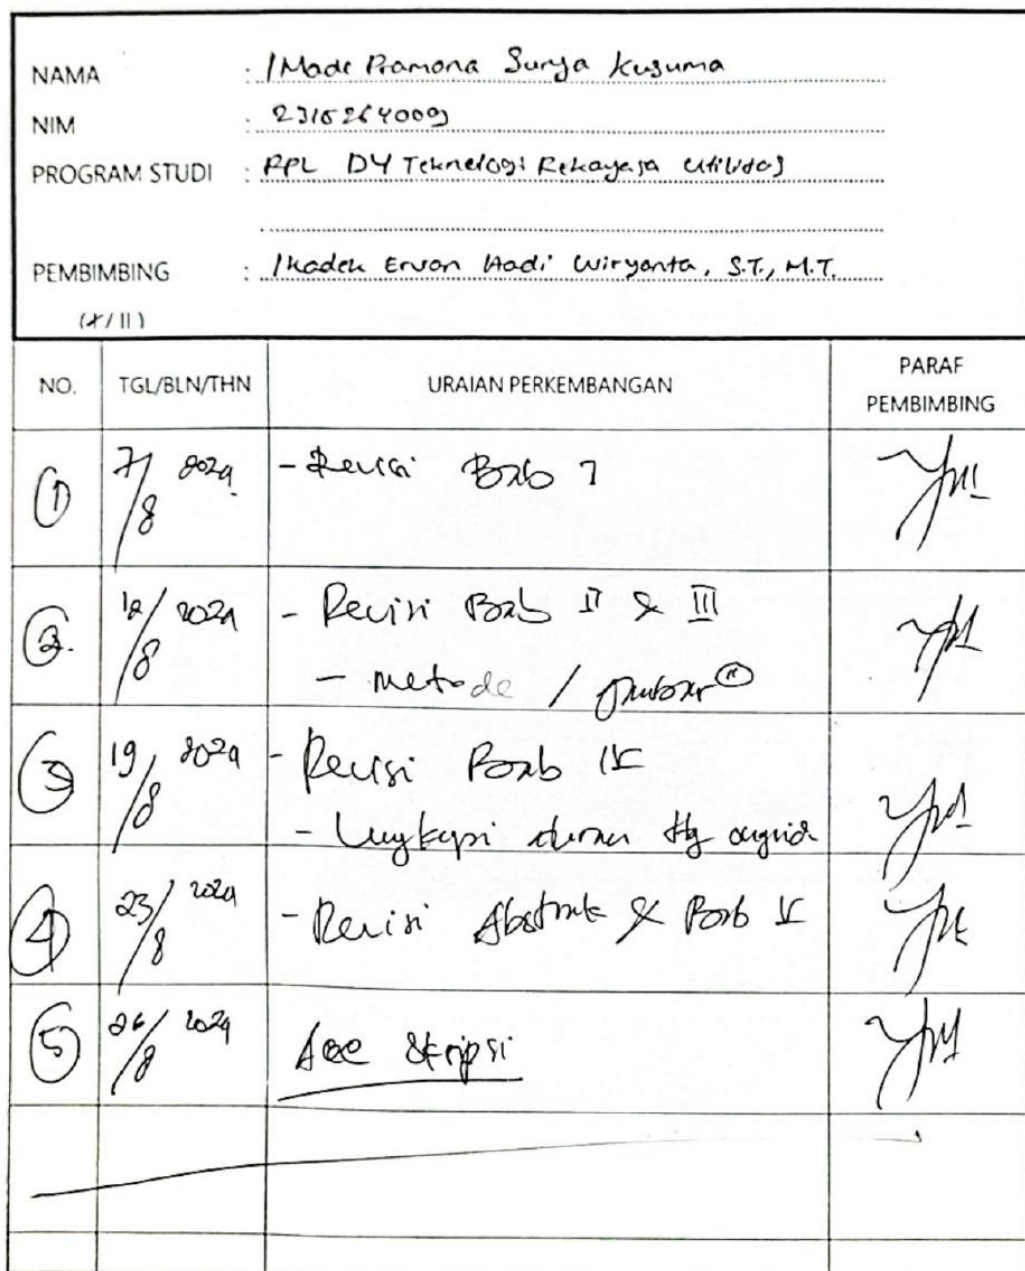 NAMA : I Made Pramana Surya Kusuma
NIM : 2315264009
PROGRAM STUDI : RPL D4 Teknologi Rekayasa Utilitas
PEMBIMBING : I Kadek Ervan Hadi Wiryanta, S.T., M.T.
(I/II)
NO. TGL/BLN/THN URAIAN PERKEMBANGAN PARAF PEMBIMBING
1 7/8 2024 - Revisi Bab I
2. 12/8 2024 - Revisi Bab II & III
- metode /
3 19/8 2024 - Revisi Bab IV
- Lengkapi
4 23/8 2024 - Revisi Abstrak & Bab V
5 26/8 2024 Acc Skripsi